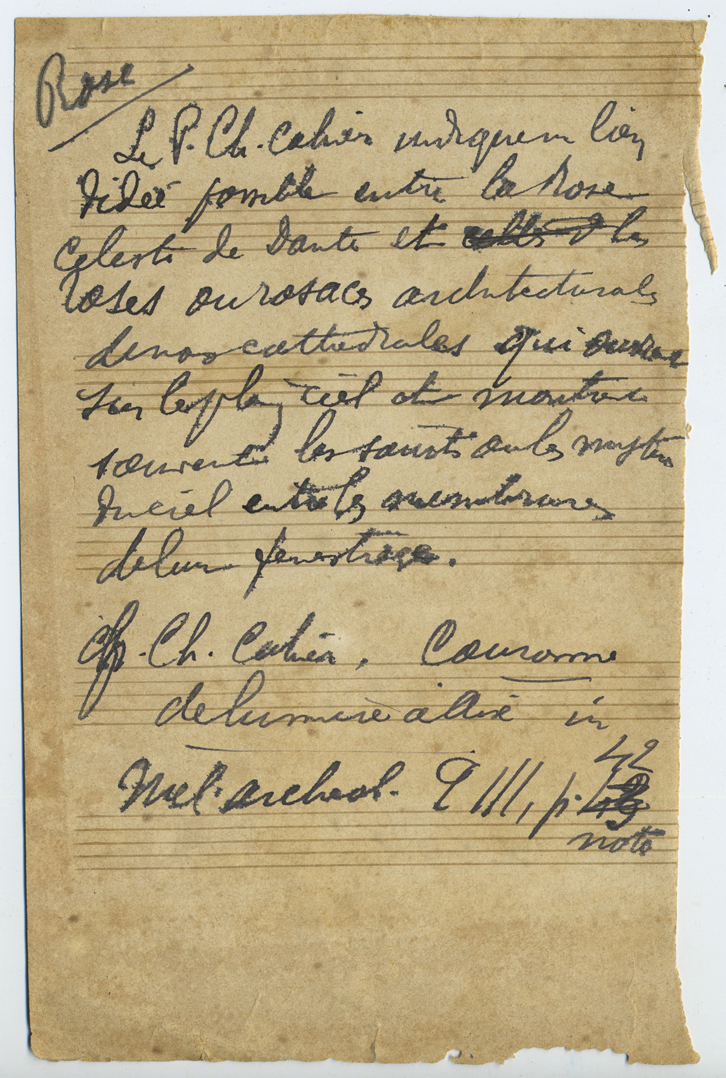 Rose
Le P. Ch. Cahier indique un lien
d'idée possible entre la Rose
Céleste de Dante et les
roses ou rosaces architecturales
de nos cathédrales qui ouvrent
sur le plein ciel et montrent
souvent les saints ou les mystères
du ciel entre les membrures
de leur fenestrage.
Cf. Ch. Cahier, Couronne
de lumière à Aix in
Mél. archéol. T III, p. 42
note